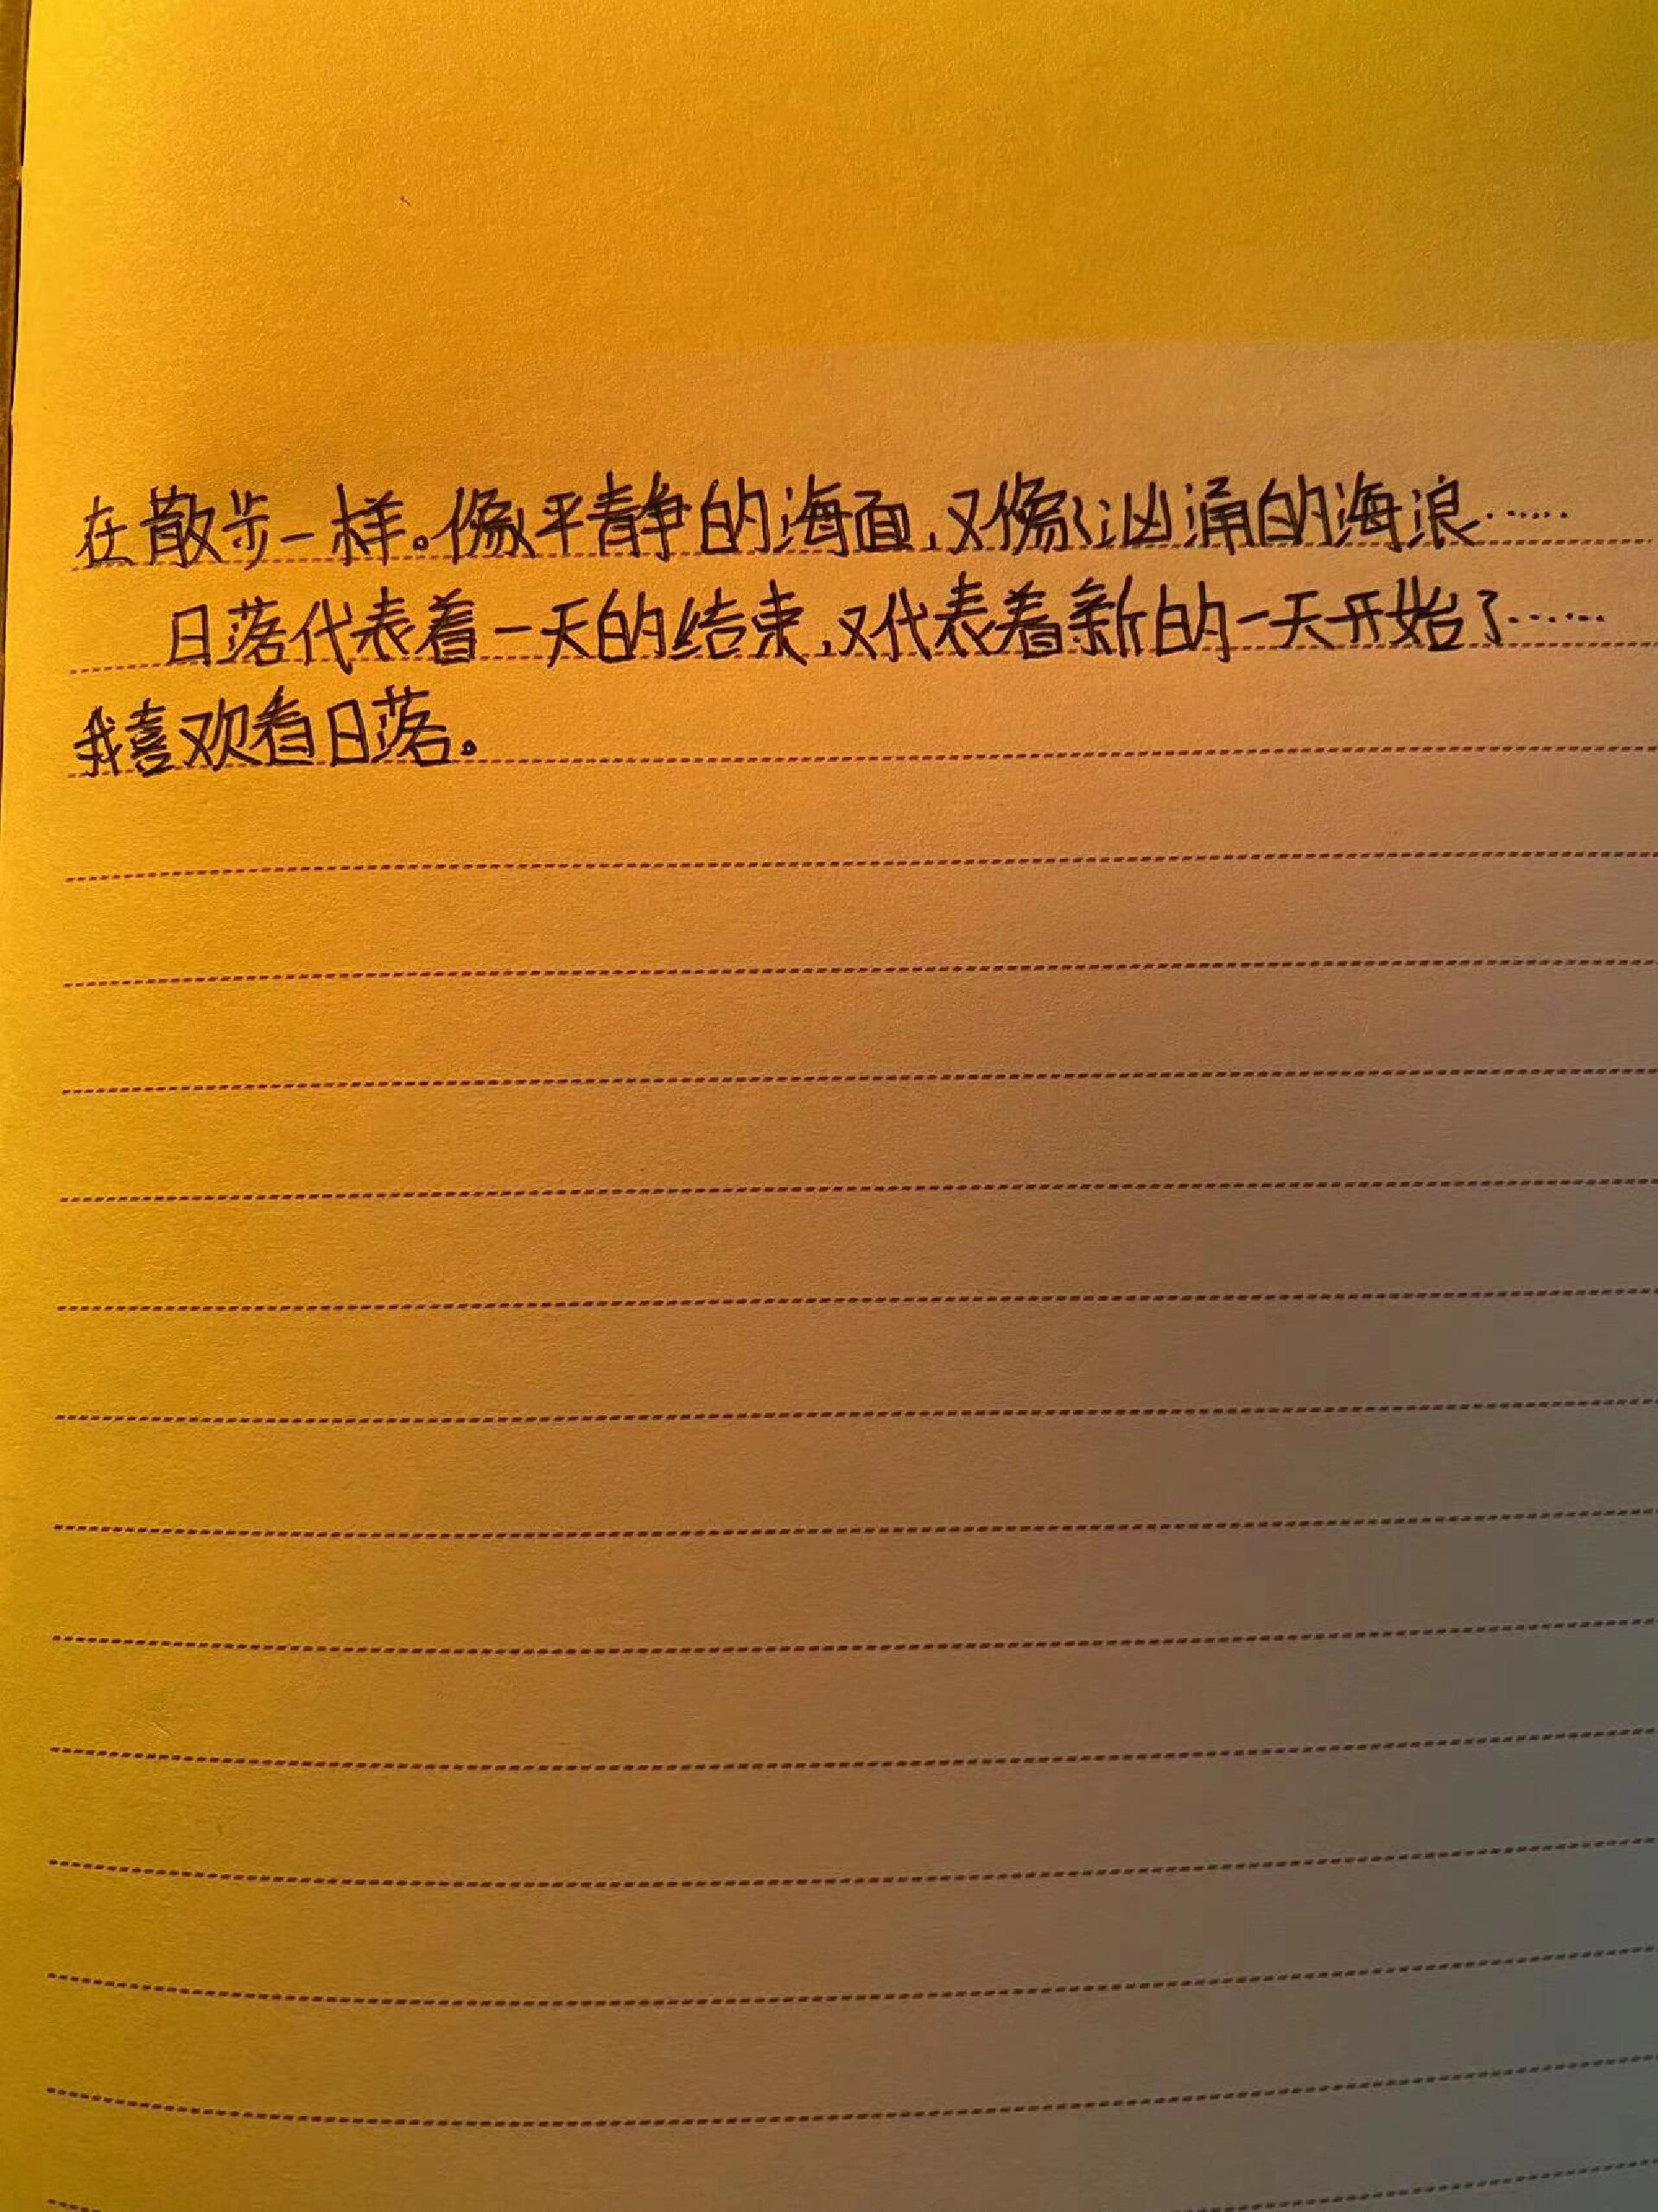 在散步一样。像平静的海面,又像汹涌的海浪……
日落代表着一天的结束,又代表着新的一天开始了……
我喜欢看日落。